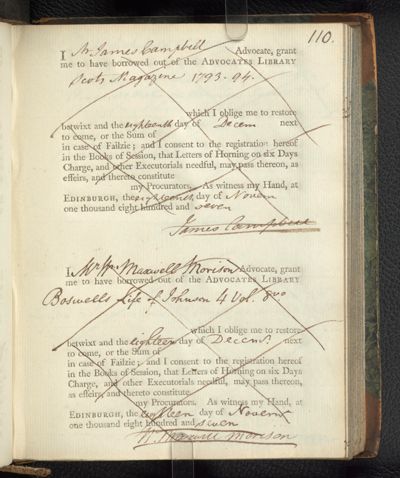 110.
I Mr James Campbell Advocate, grant
me to have borrowed out of the ADVOCATES LIBRARY
Scots Magazine 1793-94.
which I oblige me to restore
betwixt and the eighteenth day of Decem next
to come, or the Sum of
in case of Failzie; and I consent to the registration hereof
in the Books of Session, that Letters of Horning on six Days
Charge, and other Executorials needful, may pass thereon, as
effeirs, and thereto constitute
my Procurators. As witness my Hand, at
EDINBURGH, the eighteenth day of Novem
one thousand eight hundred and seven
James Campbell
I Mr Wm Maxwell Morison Advocate, grant
me to have borrowed out of the ADVOCATES LIBRARY
Boswells Life of Johnson 4 Vol. 8vo
which I oblige me to restore
betwixt and the eighteen day of Decemr. next
to come, or the Sum of
in case of Failzie; and I consent to the registration hereof
in the Books of Session, that Letters of Horning on six Days
Charge, and other Executorials needful, may pass thereon,
as effeirs, and thereto constitute
my Procurators. As witness my Hand, at
EDINBURGH, the eighteen day of Novemr
one thousand eight hundred and seven
W. Maxwell Morison